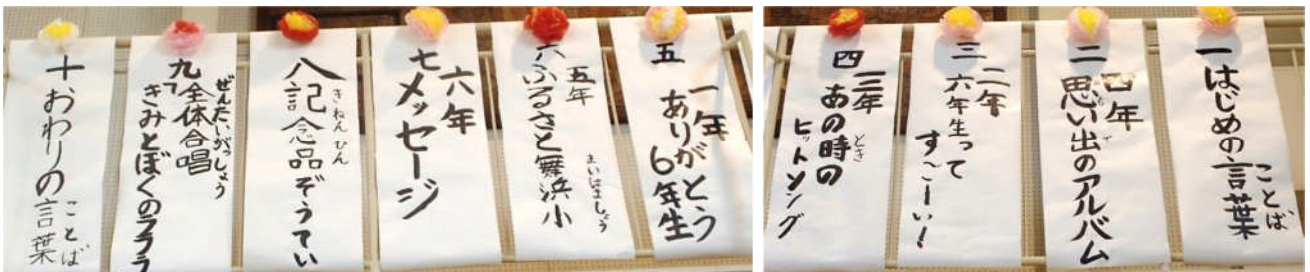 一 はじめの言葉
ことば
二 四年
思い出のアルバム
おも で
三 二年
六年生って
す〜ごーい！
四 三年
あの時の
とき
ヒットソング
五 一年
ありがとう
6年生
六 五年
ふるさと舞浜小
まいはましょう
七 六年
メッセージ
八 記念品ぞうてい
きねんひん
九 全体合唱
ぜんたいがっしょう
「きみとぼくのラララ
十 おわりの言葉
ことば